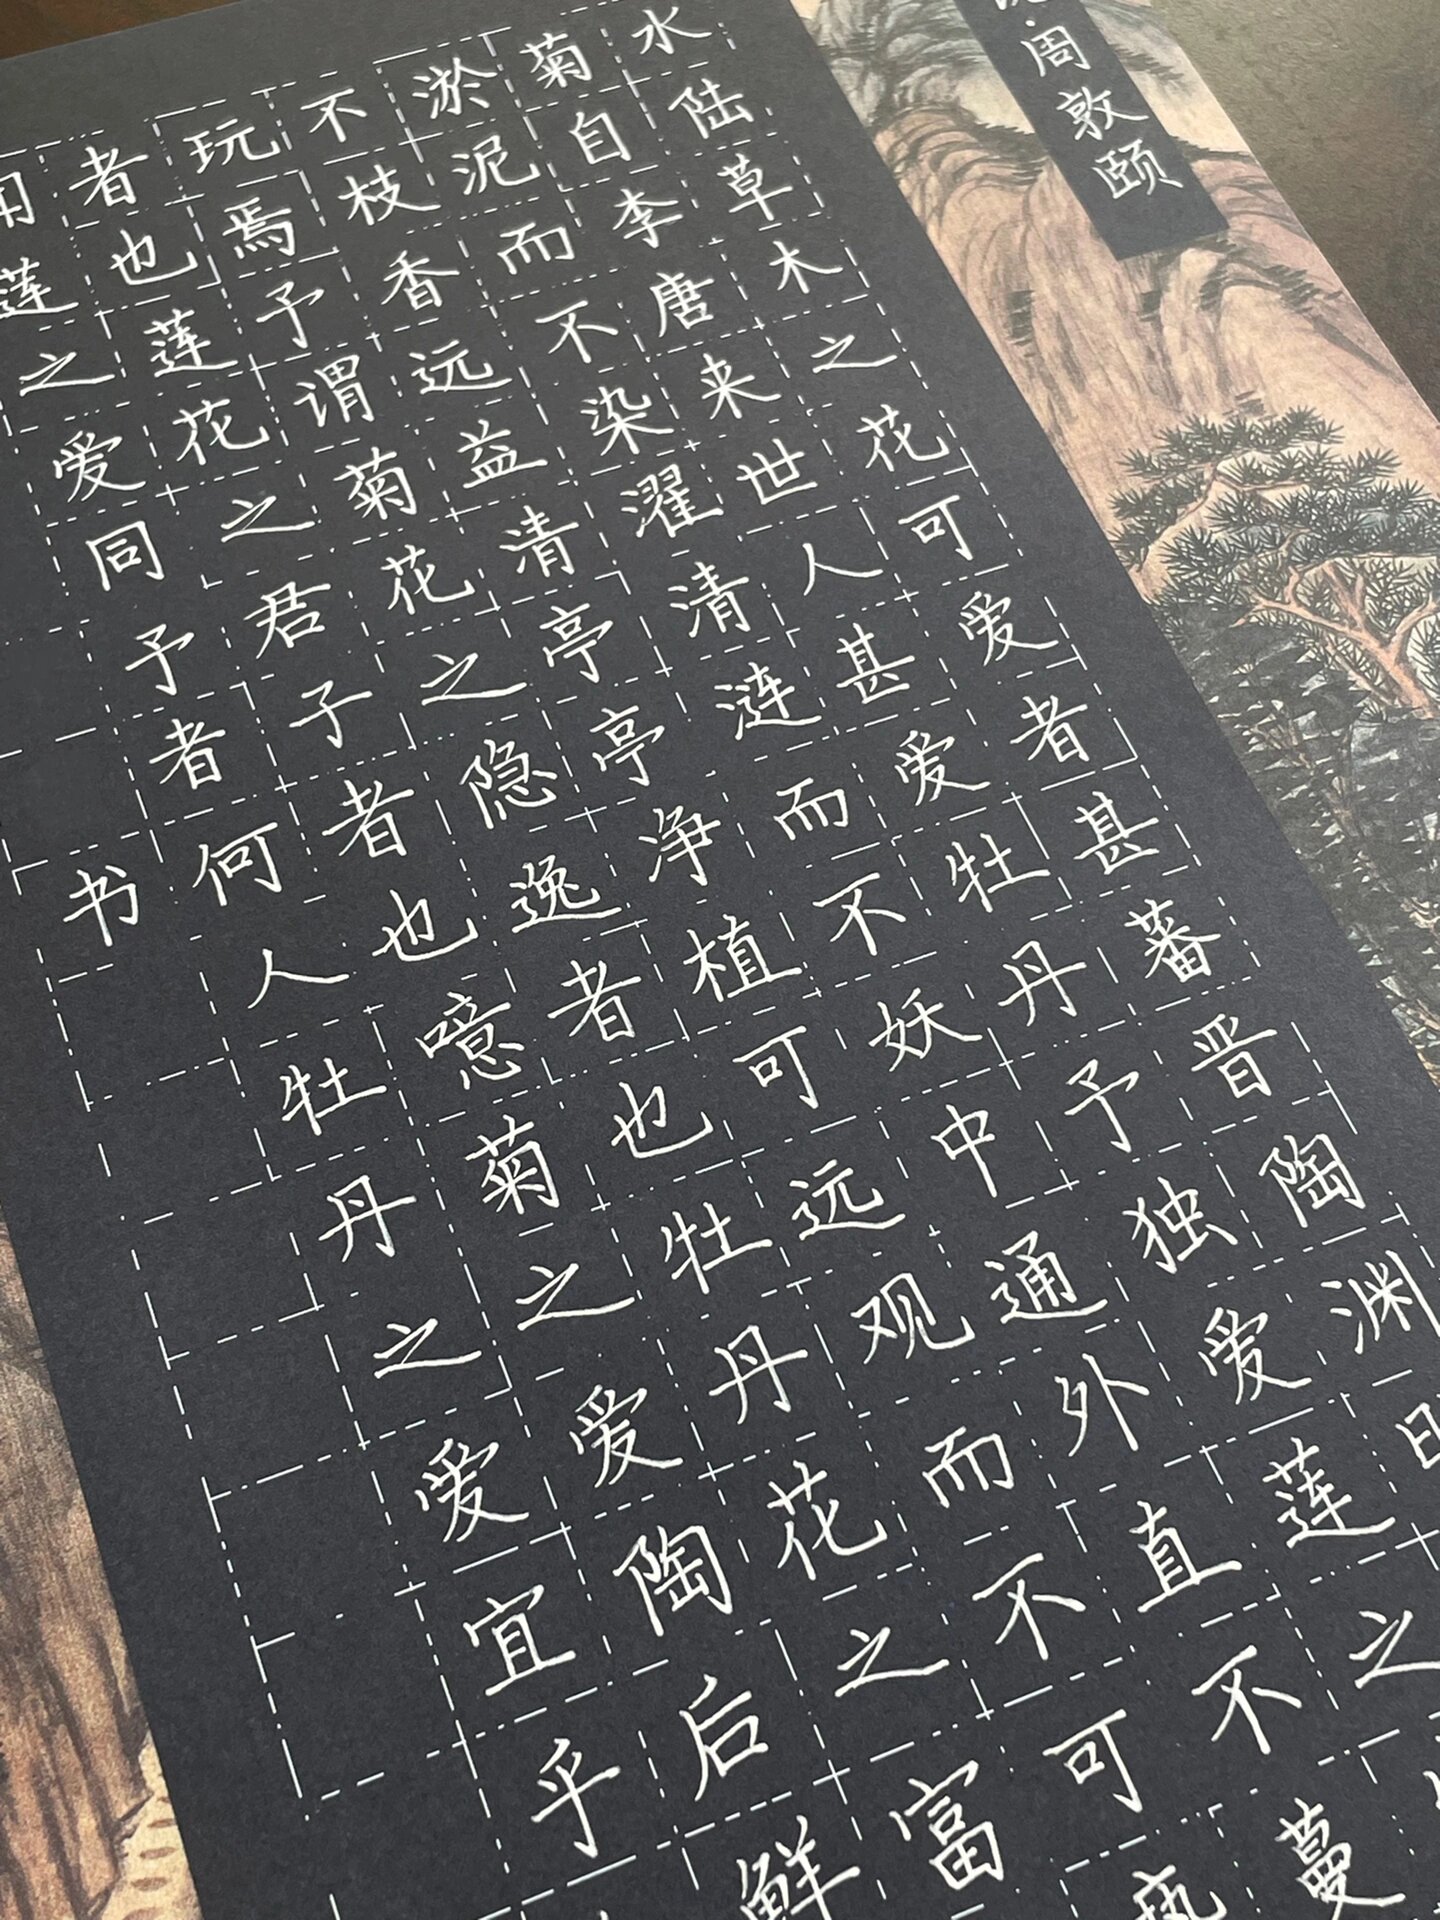 周敦颐
水陆草木之花可爱者甚蕃晋陶渊
菊自李唐来世人甚爱牡丹予独爱莲之
淤泥而不染濯清涟而不妖中通外直不蔓
不枝香远益清亭亭净植可远观而不可
玩焉予谓菊花之隐逸者也牡丹花之富
者也莲花之君子者也噫菊之爱陶后鲜
莲之爱同予者何人牡丹之爱宜乎
书